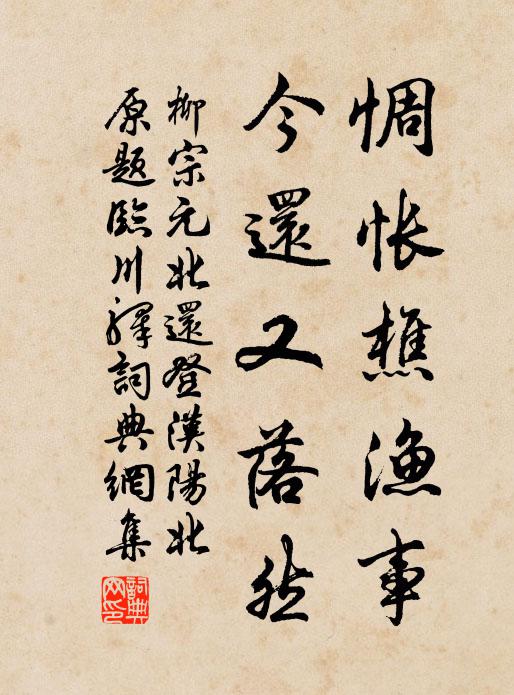 惆怅樵渔事
今還又落然
柳宗元北還登漢陽北
原题臨川驛詞典網集
詞典
网印